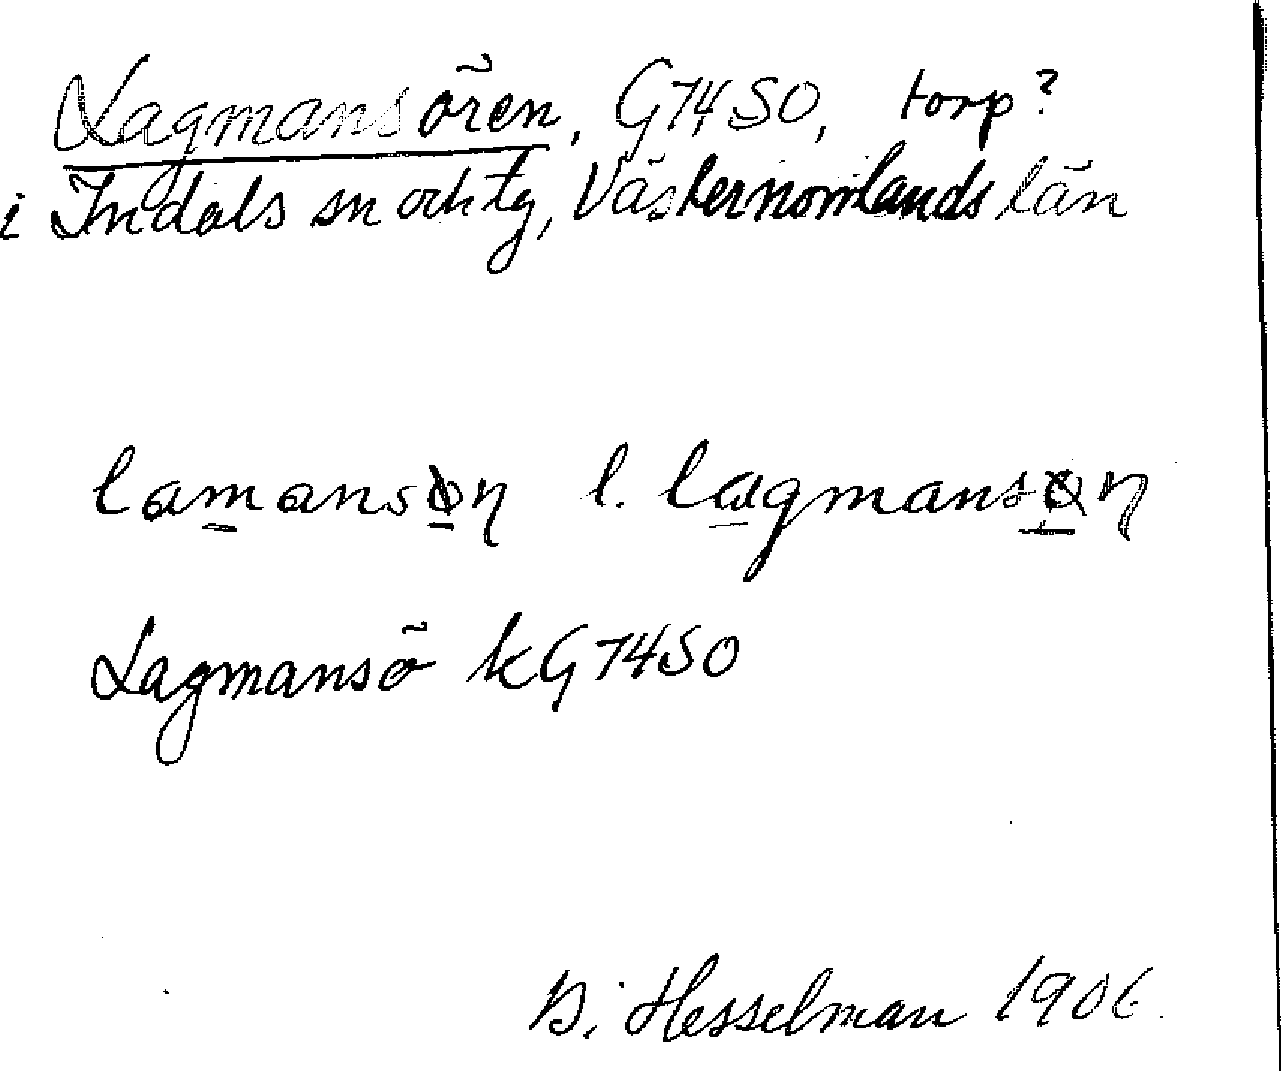 Lagmansören, G7450, torp?
i Indals sn och tg, Västernorrlands län
lamansøn l. lagmansøn
Lagmansö kG7450
B. Hesselman 1906.